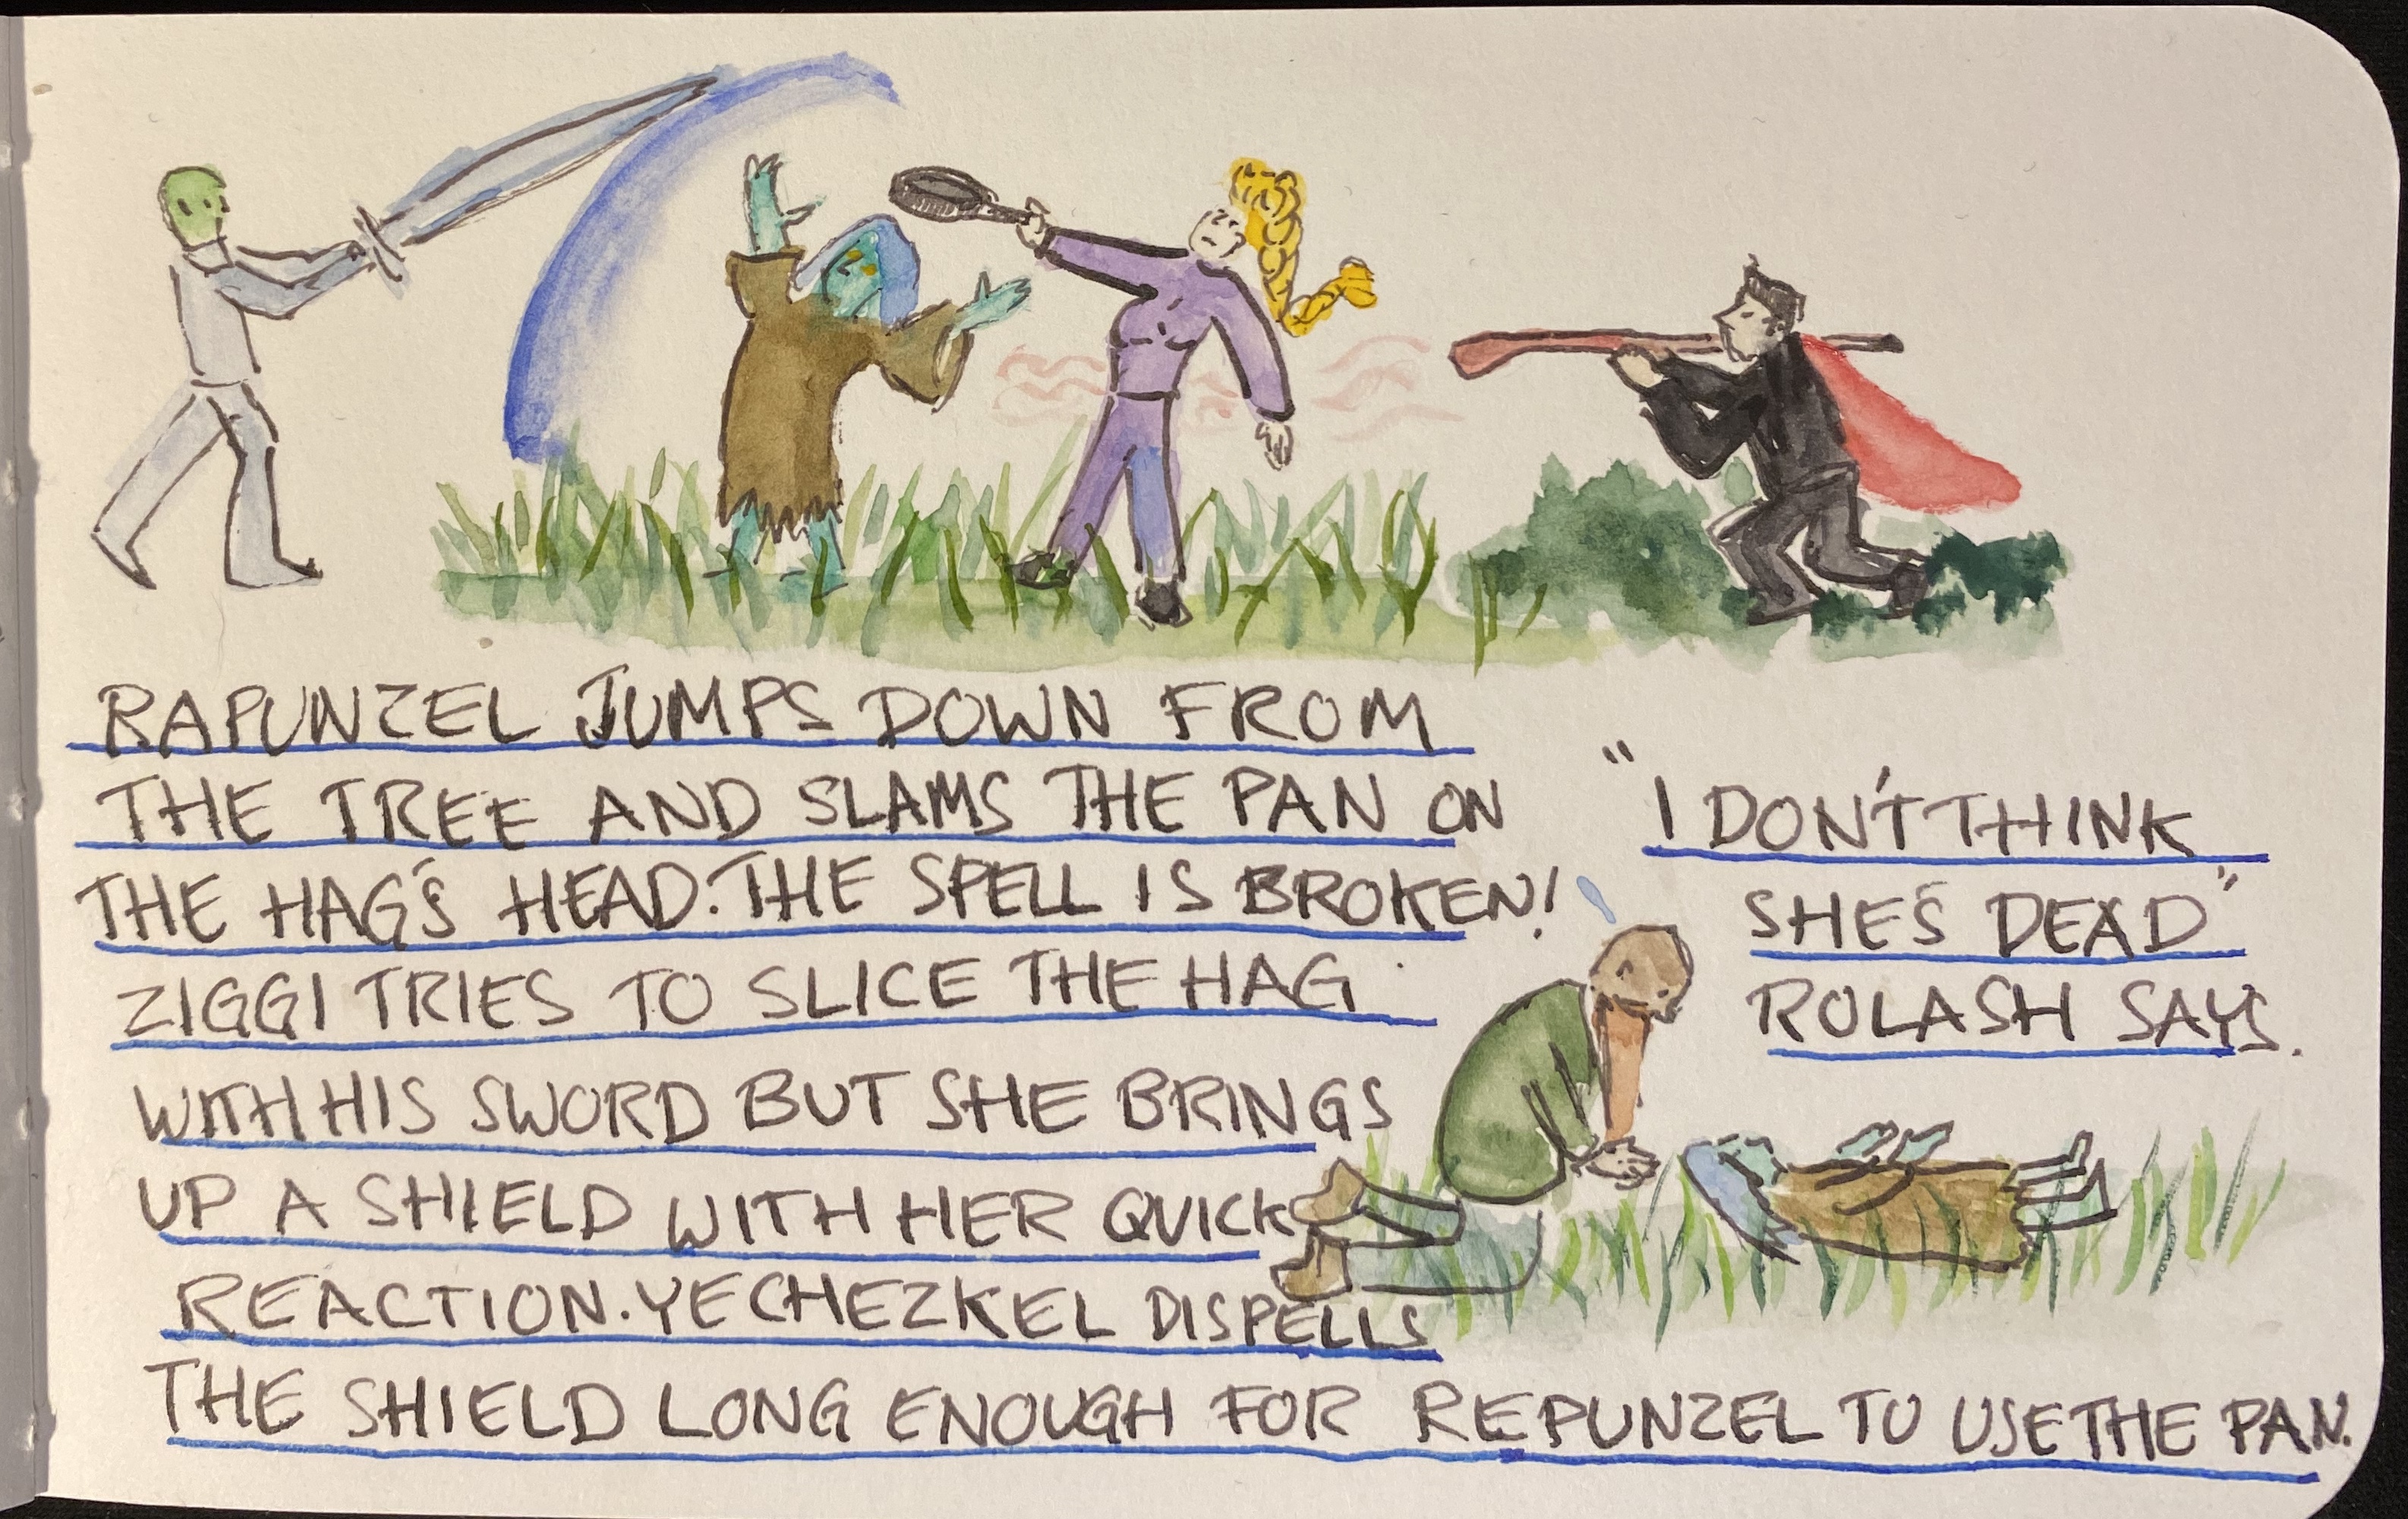 RAPUNZEL JUMPS DOWN FROM
THE TREE AND SLAMS THE PAN ON
THE HAG'S HEAD. THE SPELL IS BROKEN!
ZIGGI TRIES TO SLICE THE HAG
WITH HIS SWORD BUT SHE BRINGS
UP A SHIELD WITH HER QUICK
REACTION. YECHEZKEL DISPELLS
THE SHIELD LONG ENOUGH FOR REPUNZEL TO USE THE PAN.
"I DON'T THINK
SHE'S DEAD"
ROLASH SAYS.